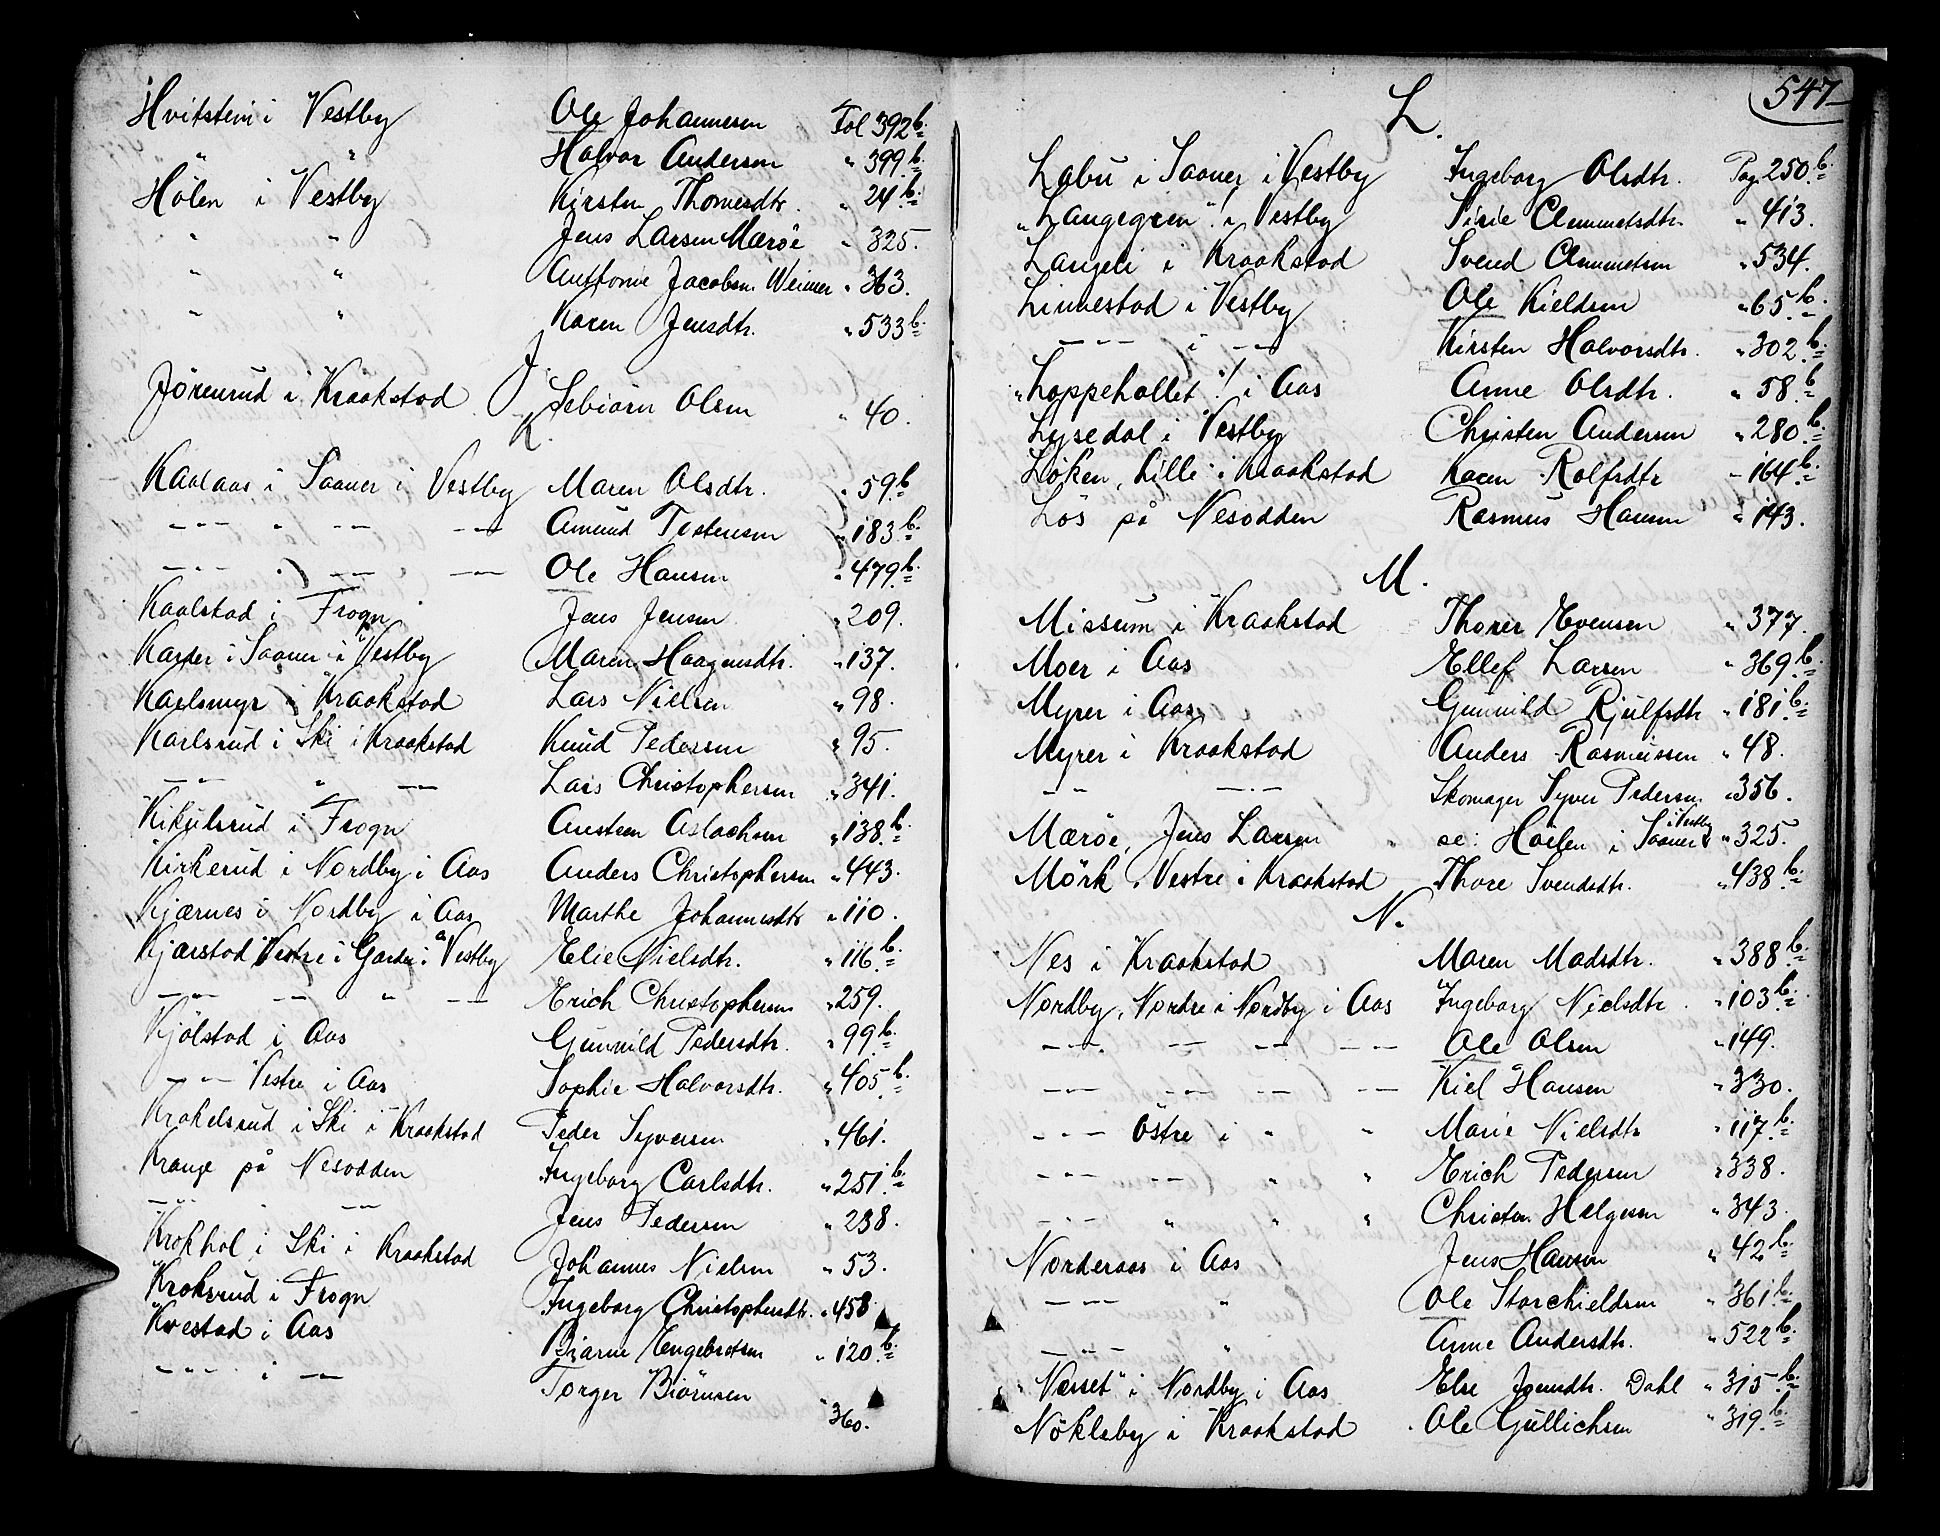 Hvitsten i Vestby Ole Johannesen Fol 392 b.
" " Halvor Andersen " 399 b.
Hölen i Vestby Kirsten Thomesdtr. " 24 b.
" " Jens Larsen Mærøe " 325.
" " Anthonie Jacobsen Weimer " 363.
" " Karen Jensdtr. " 533 b.
J.
Jörenrud i Kraakstad Sebiörn Olsen " 40.
K.
Kaalaas i Saaner i Vestby Maren Olsdtr. " 59 b
--- " -- -- Amund Tostensen " 183 b.
--- " -- --- Ole Hansen " 479 b.
Kaalstad i Frogn Jens Jensen " 209.
Kaster i Saaner i Vestby Maren Haagensdtr. " 137.
Karlsmyr i Kraakstad Lars Nielsen " 98.
Karlsrud i Ski i Kraakstad Knud Pedersen " 95.
-- -- " -- Lars Christophersen " 341.
Kikulsrud i Frogn Austeen Aslachsen " 138 b.
Kirkerud i Nordby i Aas Anders Christophersen " 443.
Kjærnes i Nordby i Aas Marthe Johannesdtr " 110.
Kjærstad Vestre i Garder i Vestby Elie Nielsdtr. " 116 b.
-- -- -- " -- Erich Christophersen " 259.
Kjölstad i Aas Gunnild Pedersdtr. " 99 b.
-- -- Vestre i Aas Sophie Halvorsdtr. " 405 b.
Krokelsrud i Ski i Kraakstad Peder Syversen " 461.
Krange på Nesodden Ingeborg Carlsdtr. " 251 b.
--- -- Jens Pedersen " 238.
Krokhol i Ski i Kraakstad Johannes Nielsen " 53.
Kroksrud i Frogn Ingeborg Christophersdtr. " 458
Kvestad i Aas Biarne Engebretsen " 120 b.
--- i -- Torger Biörnsen " 360.
547
L.
Labu i Saaner i Vestby Ingeborg Olsdtr. Pag. 250 b.
"Langegren"! i Vestby Sirie Clemmetsdtr. " 413.
Langeli i Kraakstad Svend Clemmetsen " 534.
Linnestad i Vestby Ole Kieldsen " 65 b.
--- i -- Kirsten Halvorsdtr. " 302 b.
"Loppehollet"! i Aas Anne Olsdtr. " 58 b
Lysedal i Vestby Christen Andersen " 280 b.
Löken, Lille i Kraakstad Karen Rolfsdtr " 164 b.
Lös på Nesodden Rasmus Hansen " 143.
M.
Missum i Kraakstad Thorer Evensen " 377.
Moer i Aas Ellef Larsen " 369 b.
Myrer i Aas Gunnild Rjulfsdtr " 181 b.
Myrer i Kraakstad Anders Rasmussen " 48.
-- -- -- Skomager Syver Pedersen " 356.
Mærøe, Jens Larsen " se: Höelen i Saaner i Vestby " 325.
Mörk, Vestre i Kraakstad Thore Svendsdtr. " 438 b.
N.
Nes i Kraakstad Maren Madsdtr. " 388 b.
Nordby, Nordre i Nordby i Aas Ingeborg Nielsdtr. " 103 b.
--- -- -- -- Ole Olsen " 149.
--- -- -- -- Kiel Hansen " 330.
--- Östre i " " Marie Nielsdtr " 117 b.
--- -- " " Erich Pedersen " 338.
--- " " " Christen Helgesen " 343.
Norderaas i Aas Jens Hansen " 42 b.
--- " Ole Storchieldsen " 361 b.
--- " Anne Andersdtr. " 522 b.
"Næsset" i Nordby i Aas Else Jensdtr. Dahl " 315 b.
Nökleby i Kraakstad Ole Gullichsen " 319 b.